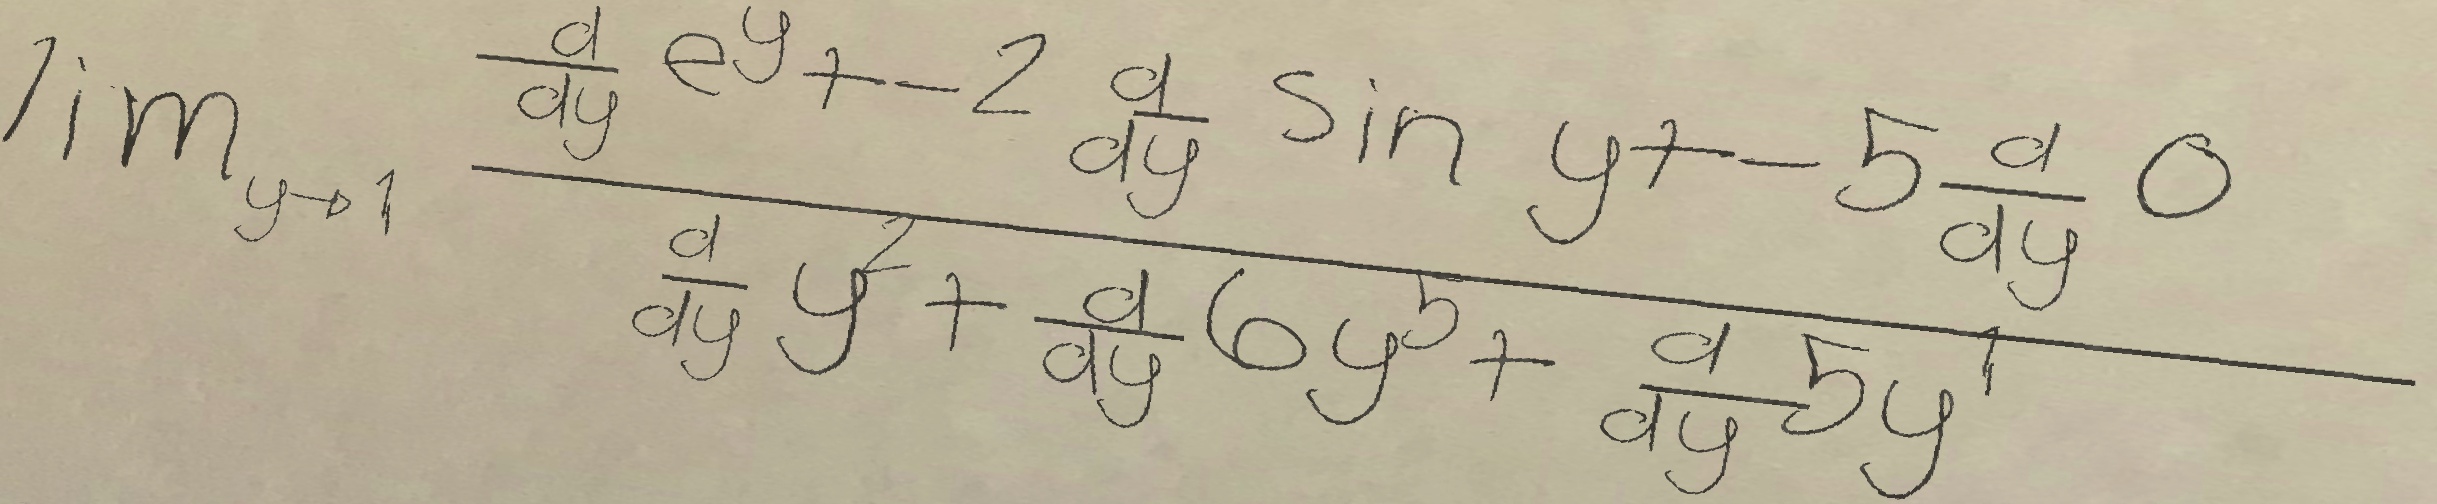 \lim_{y \to 1} \frac{\frac{d}{dy} e^{y} + -2 \frac{d}{dy} \sin y + -5 \frac{d}{dy} 0}{\frac{d}{dy} y^{2} + \frac{d}{dy} 6y^{5} + \frac{d}{dy} 5y^{1}}